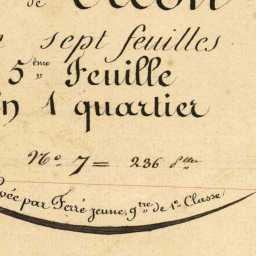 de
sept feuilles
5ème Feuille
1 quartier
No. 7 = 236
par Ferré jeune, g.tre de 1re Classe